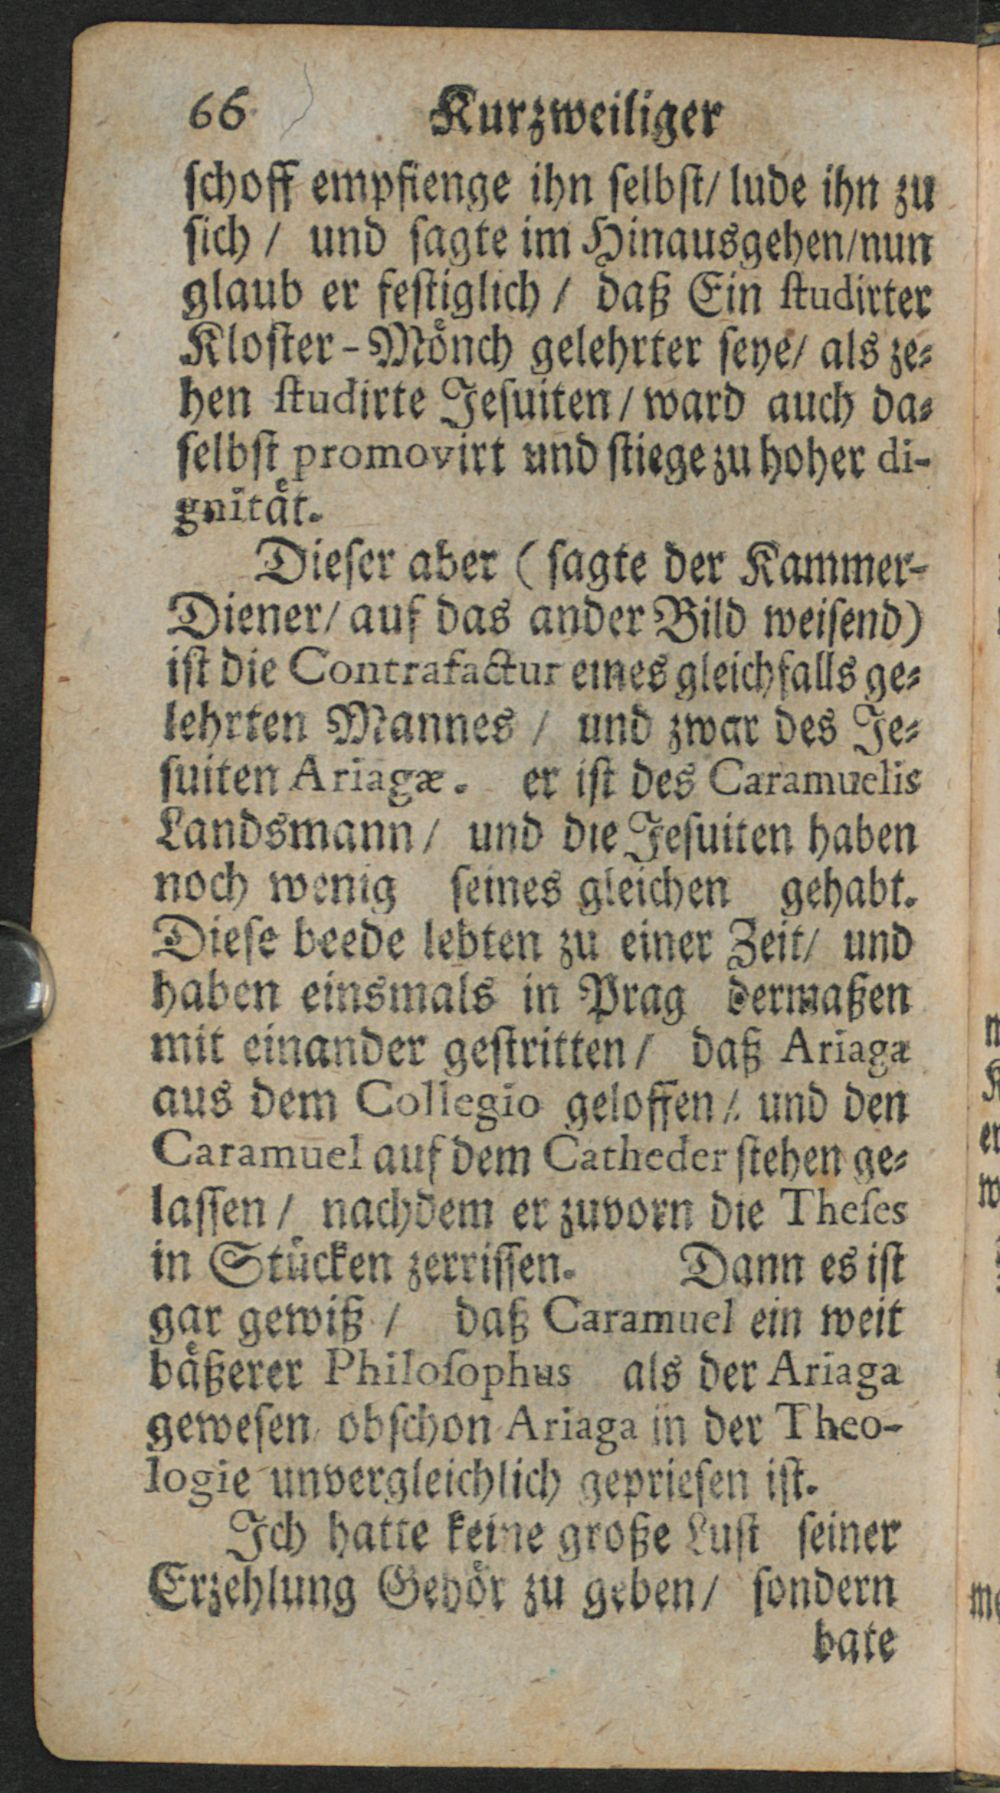 66 Kurzweiliger
schoff empfienge ihn selbst/ lude ihn zu
sich / und sagte im Hinausgehen/nun
glaub er festiglich / daß Ein studirter
Kloster-Mönch gelehrter seye/ als ze⸗
hen studirte Jesuiten / ward auch da⸗
selbst promovirt und stiege zu hoher di-
gnität.
Dieser aber ( sagte der Kammer-
Diener/ auf das ander Bild weisend)
ist die Contrafactur eines gleichfalls ge⸗
lehrten Mannes / und zwar des Je⸗
suiten Ariagæ. er ist des Caramuelis
Landsmann / und die Jesuiten haben
noch wenig seines gleichen gehabt.
Diese beede lebten zu einer Zeit/ und
haben einsmals in Prag dermaßen
mit einander gestritten / daß Ariaga
aus dem Collegio geloffen / und den
Caramuel auf dem Catheder stehen ge⸗
lassen / nachdem er zuvorn die Theses
in Stücken zerrissen. Dann es ist
gar gewiß / daß Caramuel ein weit
bäßerer Philosophus als der Ariaga
gewesen obschon Ariaga in der Theo-
logie unvergleichlich gepriesen ist.
Ich hatte keine große Lust seiner
Erzehlung Gehör zu geben / sondern
bate